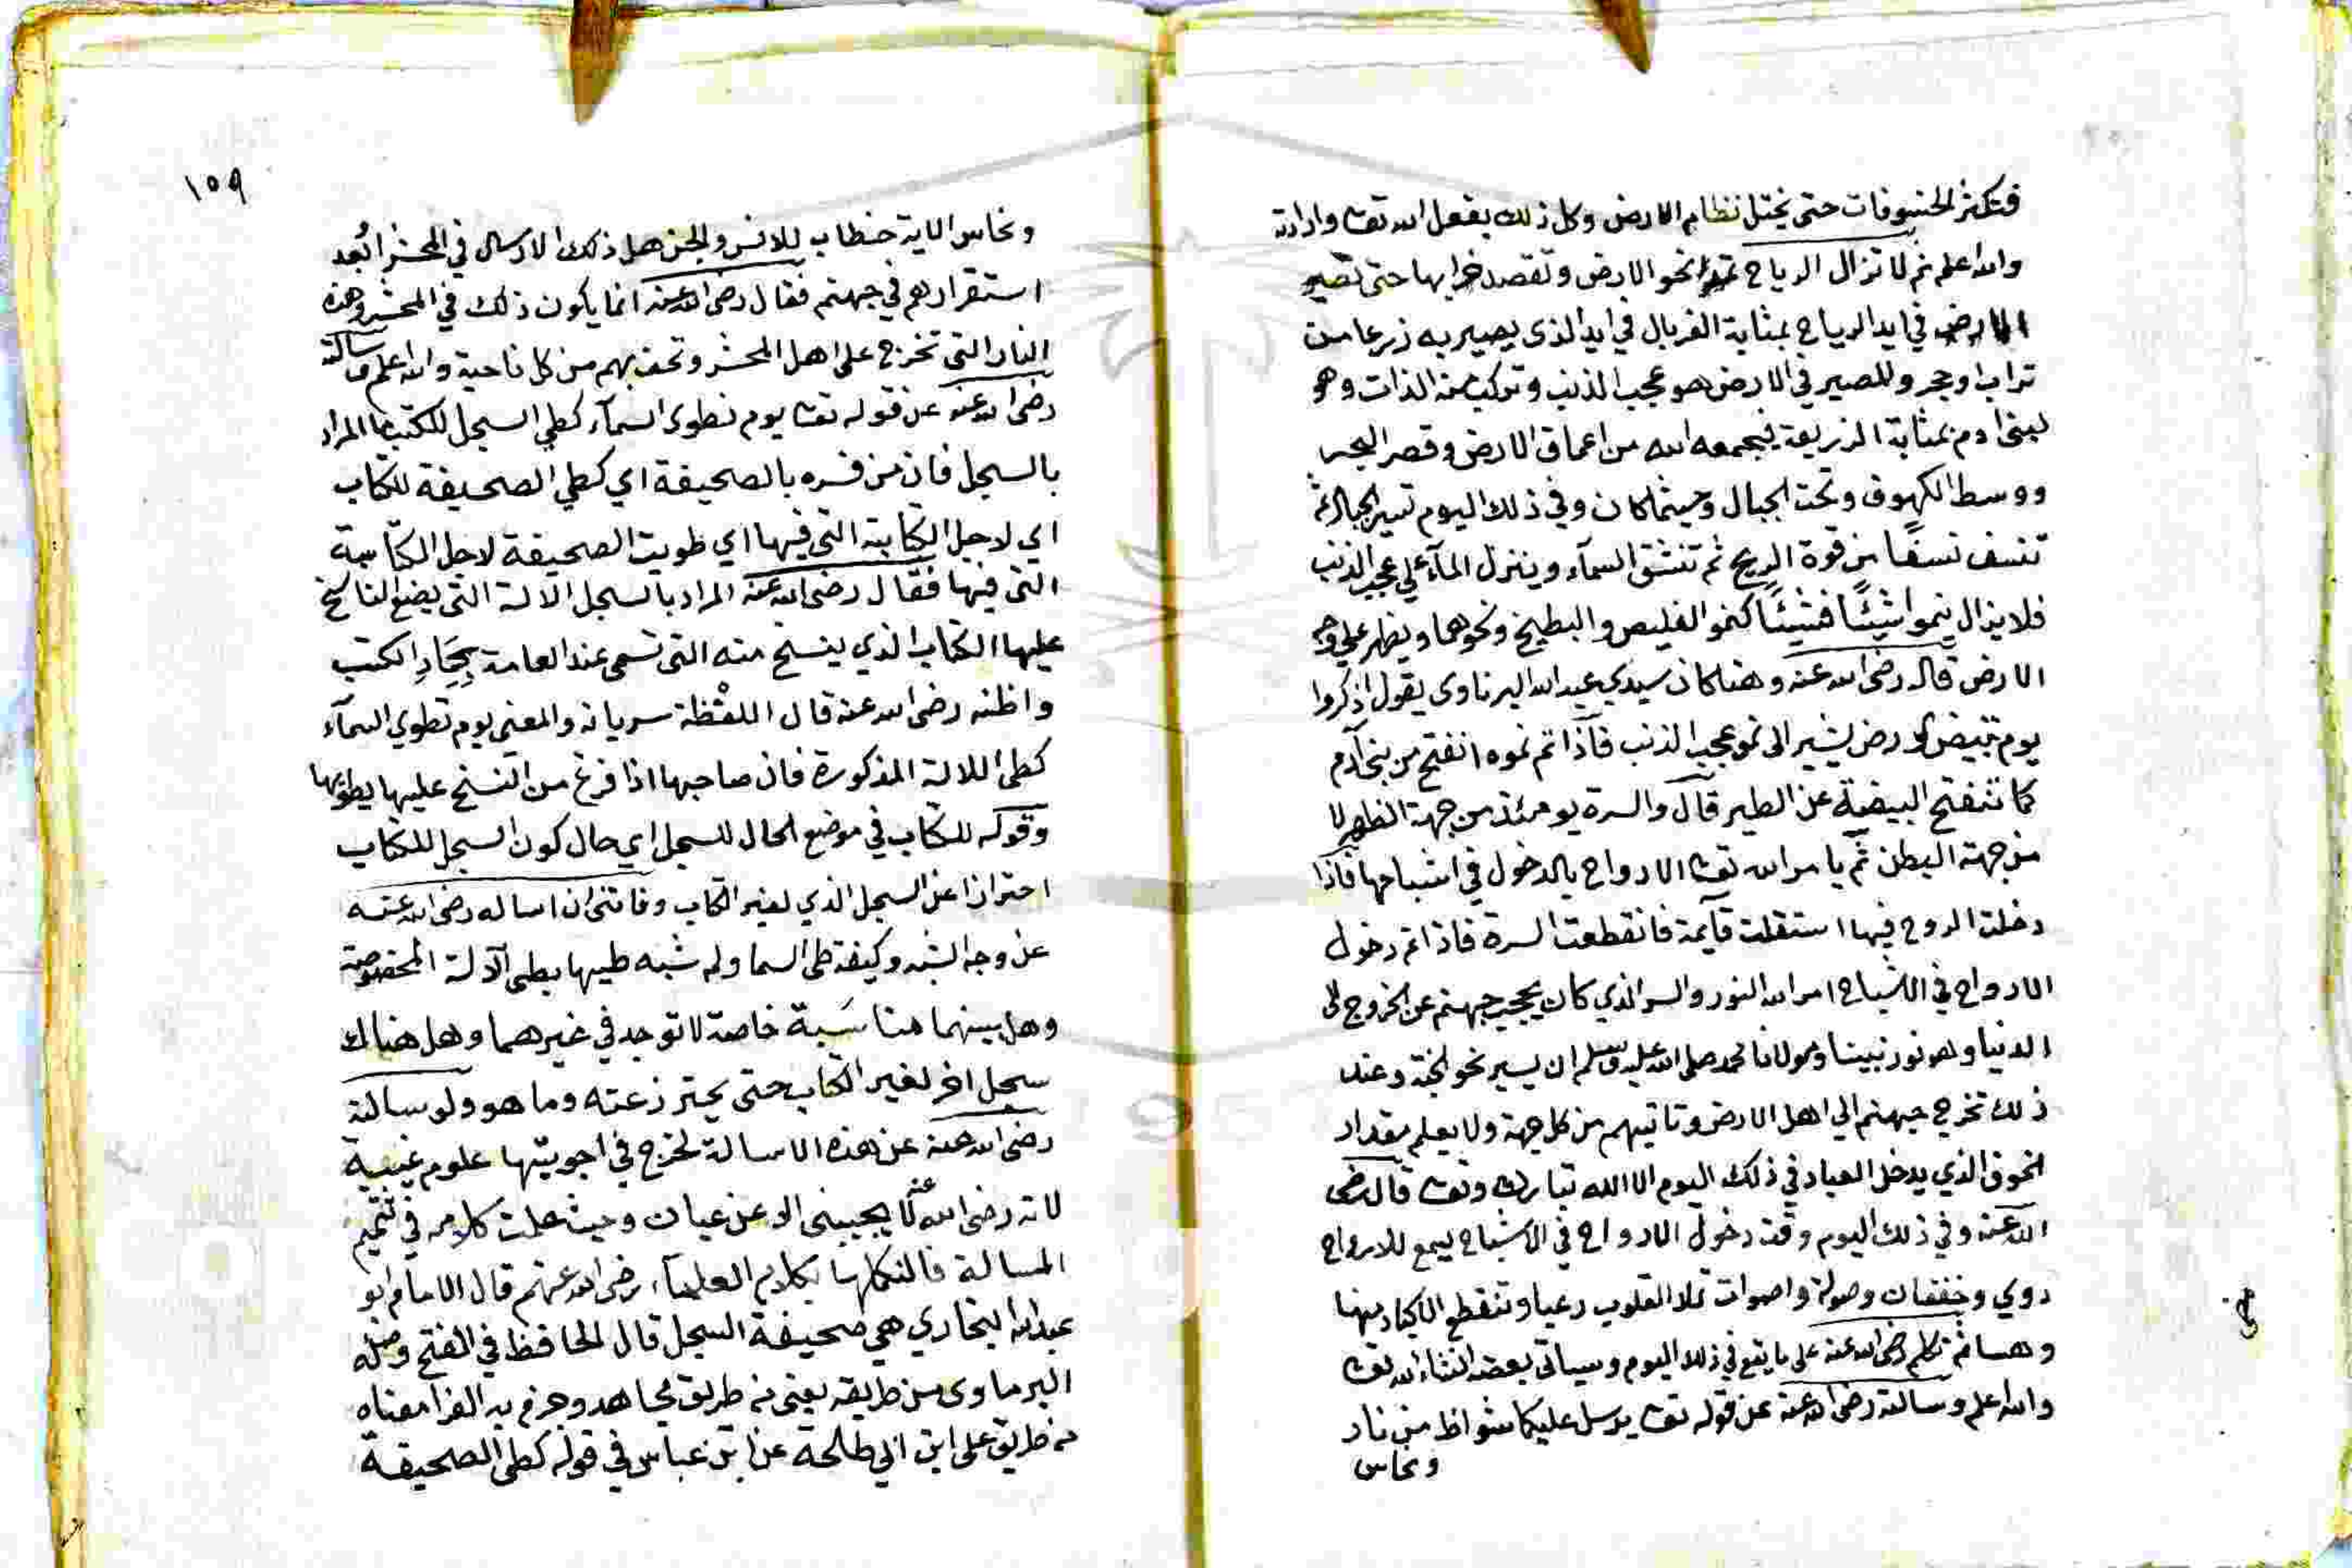 فتكثر الخسوفات حتى يختل نظام الارض وكل ذلك بفعل الله تعا وارادته
والله اعلم ثم لا تزال الرياح تمر نحو الارض وتقصد خرابها حتى تصير
الارض في ايد الرياح بمثابة الغربال في ايد الذى يصير به زرعا من
تراب او حجر وللصير في الارض هو عجب الذنب وتركيب من الذات وهو
لبنى ادم بمثابة الزريعة فيجمعه الله من اعماق الارض وقصر البحر
ووسط الكهوف وتحت الجبال وحيثما كان وفي ذلك اليوم تسير الجبال ثم
تنسف نسفًا من قوة الريح ثم تنشق السمآء وينزل المآء على عجب الذنب
فلا يزال ينموا شيئًا فشيئًا كنمو الفليص والبطيخ ونحوهما ويظهر على وجه
الارض قال رضى الله عنه وهنا كان سيدي عبد الله البرناوى يقول اذكروا
يوم تبيض الارض يشير الى نمو عجب الذنب فاذا تم نموه انفتح من بنى آدم
كما تنفتح البيضة عن الطير قال والسرة يومئذ من جهة الظهر لا
من جهة البطن ثم يامر الله تعا الارواح بالدخول في اشباحها فاذا
دخلت الروح فيها استقلت قآيمة فانقطعت السرة فاذا تم دخول
الارواح في الاشباح امر الله النور والسر الذي كان يحجب جهنم عن الخروج الى
الدنيا وهو نور نبينا ومولانا محمد صلى الله عليه وسلم ان يسير نحو الجنة وعند
ذلك تخرج جهنم الي اهل الارض وتاتيهم من كل جهة ولا يعلم مقدار
الخوف الذي يدخل العباد في ذلك اليوم الا الله تبارك وتعا قال رضى
الله عنه وفي ذلك اليوم وقت دخول الارواح في الاشباح يسمع للارواح
دوي وخفقان وصولة واصوات تملا القلوب رعبا وتنقطع الاكباد منها
وهسا ثم تكلم رضى الله عنه على ما يقع في ذلك اليوم وسياتى بعضه انشاء الله تعا
والله اعلم وسالته رضى الله عنه عن قوله تعا يرسل عليكما شواظ من نار
ونحاس
١٥٩
ونحاس الاية خطاب للانس والجن هل ذلك الارسال في المحشر ابُعد
استقرارهم في جهنم فقال رضى الله عنه انما يكون ذلك في المحشر وهذه
النار التى تخرج على اهل المحشر وتحف بهم من كل ناحية والله اعلم وسالته
رضى الله عنه عن قوله تعا يوم نطوى السمآء كطي السجل للكتب ما المراد
بالسجل فان من فسره بالصحيفة اي كطي الصحيفة للكتاب
اي لاجل الكتابة التى فيها اي طويت الصحيفة لاجل الكتابة
التى فيها فقال رضى الله عنه المراد بالسجل الالة التى يضع الناسخ
عليها الكتاب الذي ينسخ منه التى تسمى عند العامة بحِمَارِ الكتب
واظنه رضى الله عنه قال اللفظة سريانة والمعنى يوم تطوي السمآء
كطى اللالة المذكورة فان صاحبها اذا فرغ من النسخ عليها يطويها
وقوله للكتاب في موضع الحال للسجل اي حال كون السجل للكتاب
احترازا عن السجل الذي لغير الكتاب وفاتنى ان اساله رضى الله عنه
عن وجه الشبه وكيفية طى السما ولم شبه طيها بطى الالة المخصوصة
وهل بينهما مناسَبة خاصة لا توجد في غيرهما وهل هناك
سجل اخر لغير الكتاب حتى يحترز عنه وما هو ولو سالته
رضى الله عنه عن هذه الاسالة لخرج في اجوبتها علوم غيبية
لانه رضى الله عنه لا يجيبنى الا عن عيان وحيث علمت كلامه في تتميم
المسالة فالنكلها بكلام العلمآء رضى الله عنهم قال الامام ابو
عبد الله البخاري هي صحيفة السجل قال الحافظ في الفتح وصله
البرماوى من طريقه يعنى من طريق مجاهد وجزم به الفرا معناه
من طريق على ابن ابي طلحة عن ابن عباس في قوله كطى الصحيفة